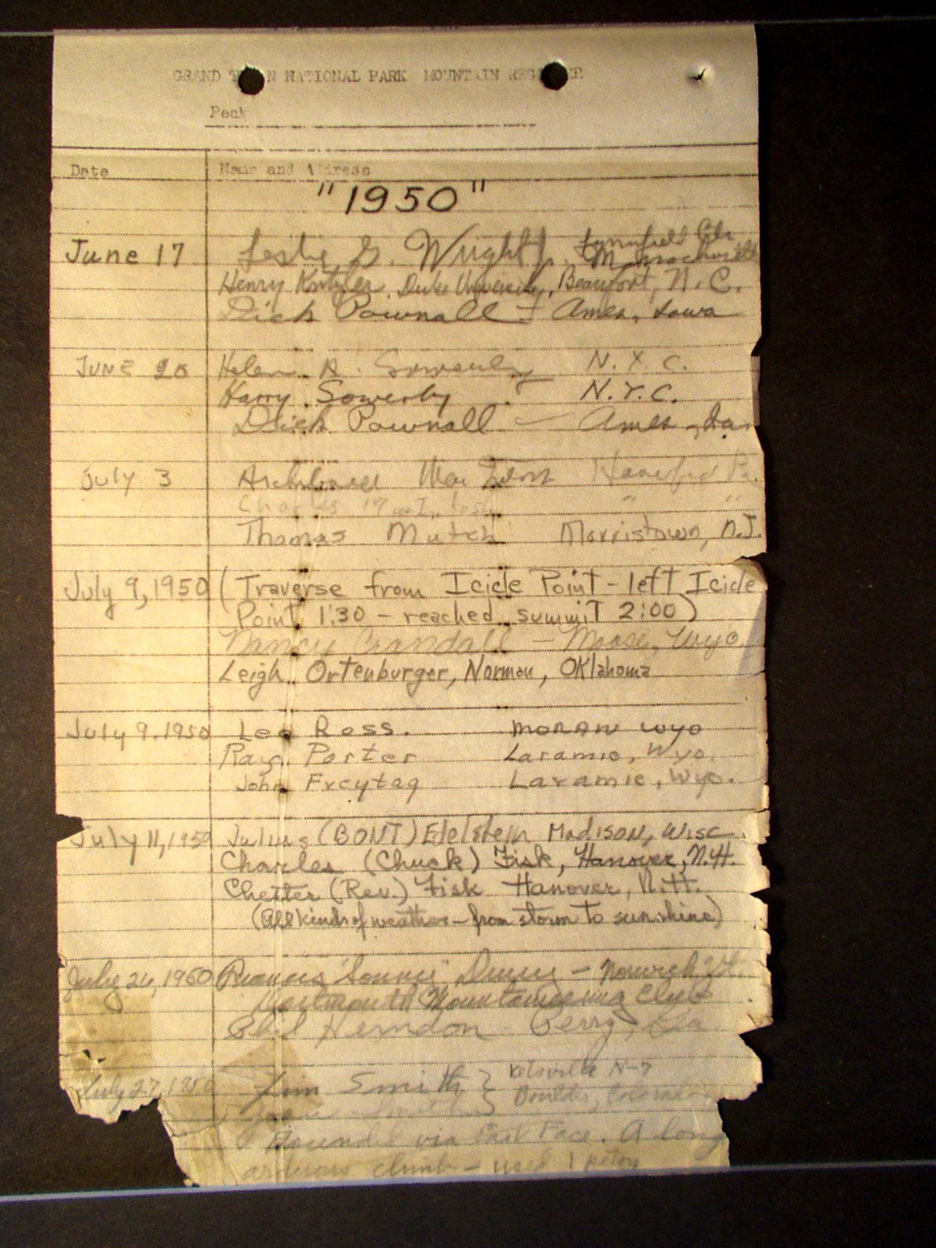 GRAND NATIONAL PARK MOUNTAIN
Peak
Date Name and Address
"1950"
June 17 Leslie G. Wright
Massachusetts
Henry Duke University, Beaufort, N.C.
Dick Pownall - Ames, Iowa
JUNE 20 Helen A. Sowerby N.Y.C.
Harry Sowerby N.Y.C.
Dick Pownall - Ames, Ia.
July 3 Pa.
Charles " "
Thomas Mutch Morristown, N.J.
July 9, 1950 (Traverse from Icicle Point - left Icicle
Point 1:30 - reached summit 2:00)
Nancy Crandall - Moose, Wyo.
Leigh Ortenburger, Norman, Oklahoma
July 9, 1950 Leo Ross. MORAN WYO
Ray Porter Laramie, Wyo.
John Freytag Laramie, Wyo.
July 11, 1950 Julius (BONT) Edelstein Madison, Wisc.
Charles (Chuck) Fisk, Hanover, N.H.
Chester (Rev.) Fisk Hanover, N.H.
(All kinds of weather - from storm to sunshine)
July 26, 1950 Francis "Sonny" - Norwich Vt.
Dartmouth Mountaineering Club
Phil Herndon Perry, Ga.
July 27, 1950 Jim Smith } N-Y
Smith } Boulder, Colorado
via East Face. A long
arduous climb - used 1 piton